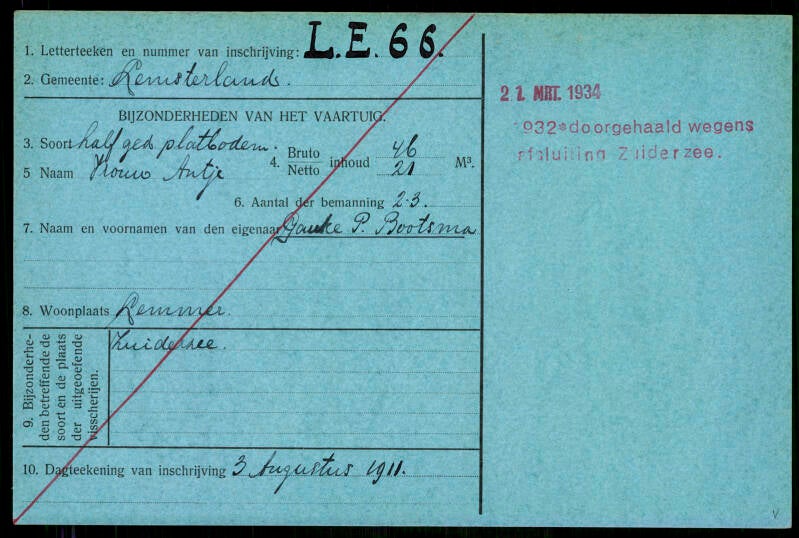 1. Letterteeken en nummer van inschrijving: L.E. 66.
2. Gemeente: Lemsterland.
BIJZONDERHEDEN VAN HET VAARTUIG.
3. Soort half ged platbodem.
4. Bruto Netto inhoud 46 21 M³.
5 Naam Vrouw Antje
6. Aantal der bemanning 2-3.
7. Naam en voornamen van den eigenaar Gauke P. Bootsma
8. Woonplaats Lemmer.
9. Bijzonderhe-
den betreffende de
soort en de plaats
der uitgeoefende
visscherijen.
Zuiderzee.
10. Dagteekening van inschrijving 3 Augustus 1911.
21 MRT. 1934
932*doorgehaald wegens
afsluiting Zuiderzee.